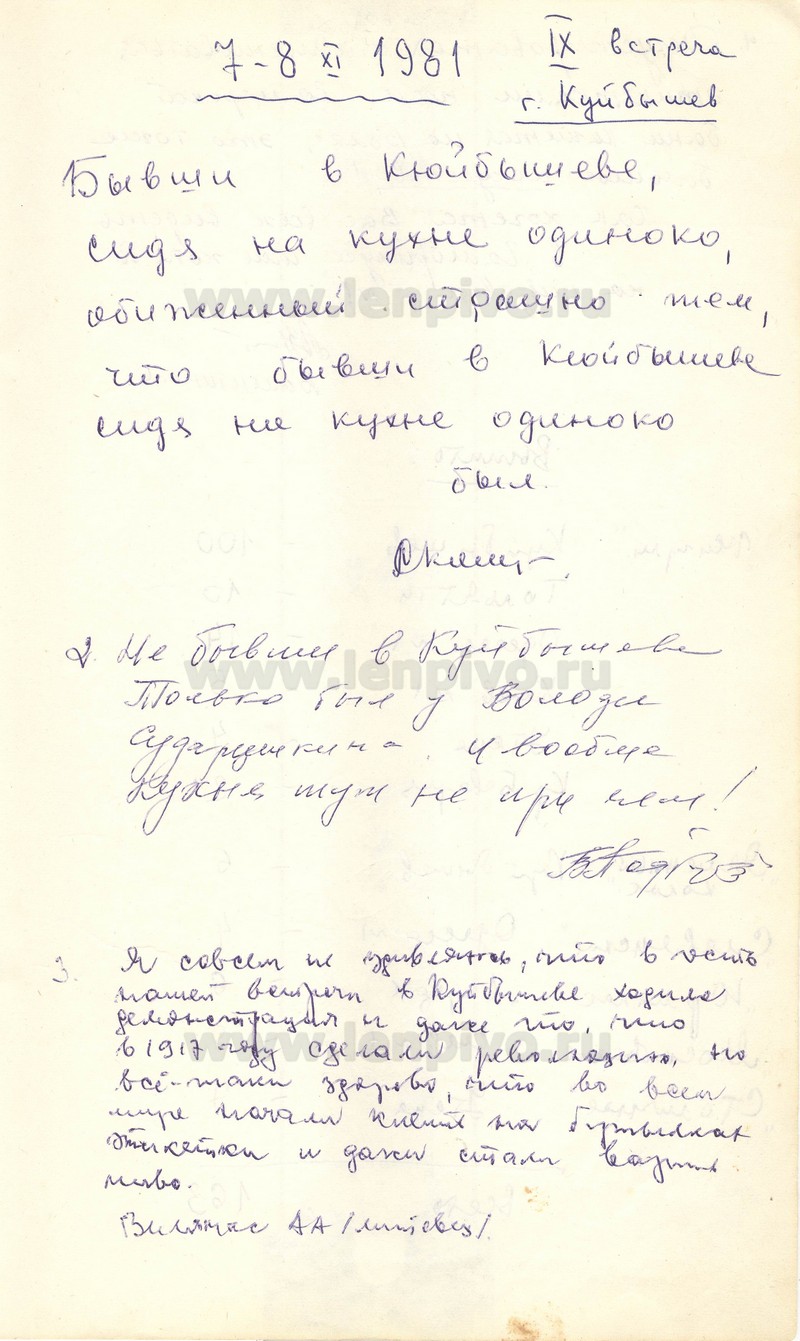 7-8 XI 1981
IX встреча
г. Куйбышев
Бывши в Кюйбышеве,
сидя на кухне одиноко,
обиженный страшно тем,
что бывши в Кюйбышеве
сидя на кухне одиноко
был.
2. Не бывши в Куйбышеве
Только был у Володи
Сударушкина. И вообще
Кухня тут не при чем!
3. Я совсем не удивляюсь, что в честь
нашей встречи в Куйбышеве ходила
демонстрация и даже то, что
в 1917 году сделали революцию, но
всё-таки здорово, что во всем
мире начали клеить на бутылках
этикетки и даже стали варить
пиво.
АА
www.lenpivo.ru
www.lenpivo.ru
www.lenpivo.ru